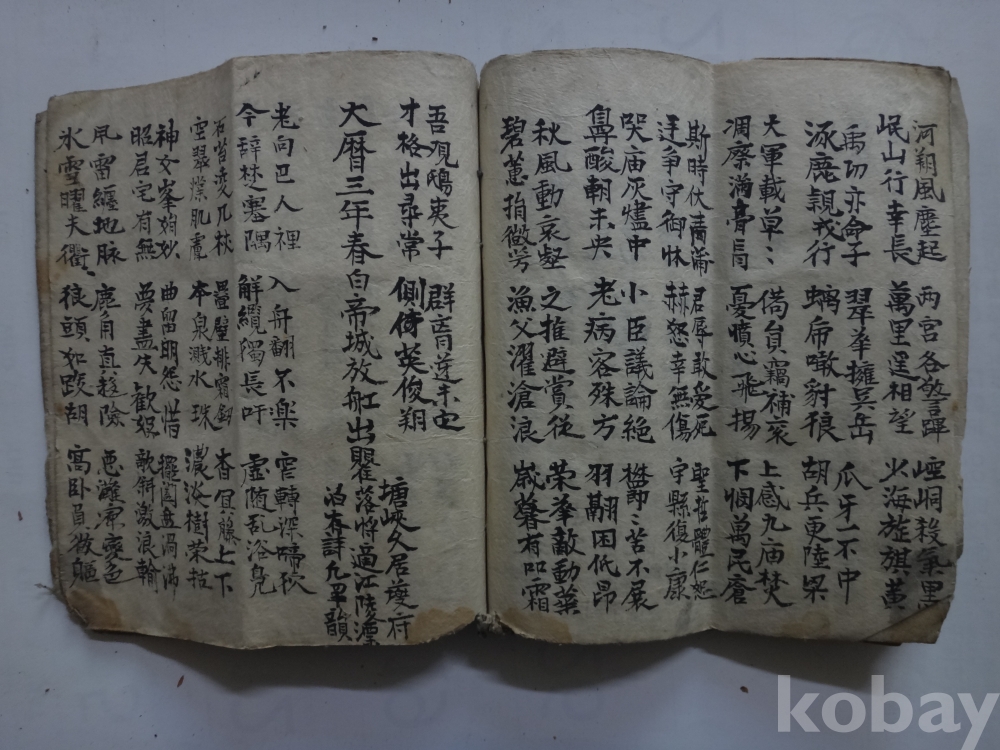 河朔風塵起 兩宮各警蹕 崆峒殺氣黑
岷山行幸長 萬里遙相望 少海旌旗黃
禹功亦命子 翠華擁吳岳 爪牙一不中
涿鹿親戎行 螭虎噉豺狼 胡兵更陸梁
大軍載草〻 備員竊補袞 上感九庙焚
凋瘵滿膏肓 憂憤心飛揚 下憫萬民瘡
斯時伏青蒲 君辱敢愛死 聖哲體仁恕
廷争守御床 赫怒幸無傷 宇縣復小康
哭庙灰燼中 小臣議論絶 鬱〻苦不展
鼻酸朝未央 老病客殊方 羽翮困低昂
秋風動哀壑 之推避賞從 荣華敵勳業
碧蕙捐微芳 漁父濯滄浪 歲暮有嚴霜
吾观鴟夷子 群凶逆未定
才格出尋常 側倚英俊翔
大曆三年春白帝城放舡出瞿塘峽久居夔府
落將適江陵漂
泊有詩凡四十韻
老向巴人裡 入舟翻不樂 窄轉深啼狖
今辭楚塞隅 解纜獨長吁 虛随乱浴鳧
石苔凌几杖 疊壁排霜釼 杳冥藤上下
空翠撲肌膚 本泉濺水珠 濃淡樹荣枯
神女峯娟妙 曲留明怨惜 擺闔盘渦沸
昭君宅有無 夢盡失歡娛 欹斜激浪輸
風雷纏地脉 鹿角真趍險 惡灘寧變色
氷雪曜天衢 狼頭如跋胡 高卧負微軀
kobay